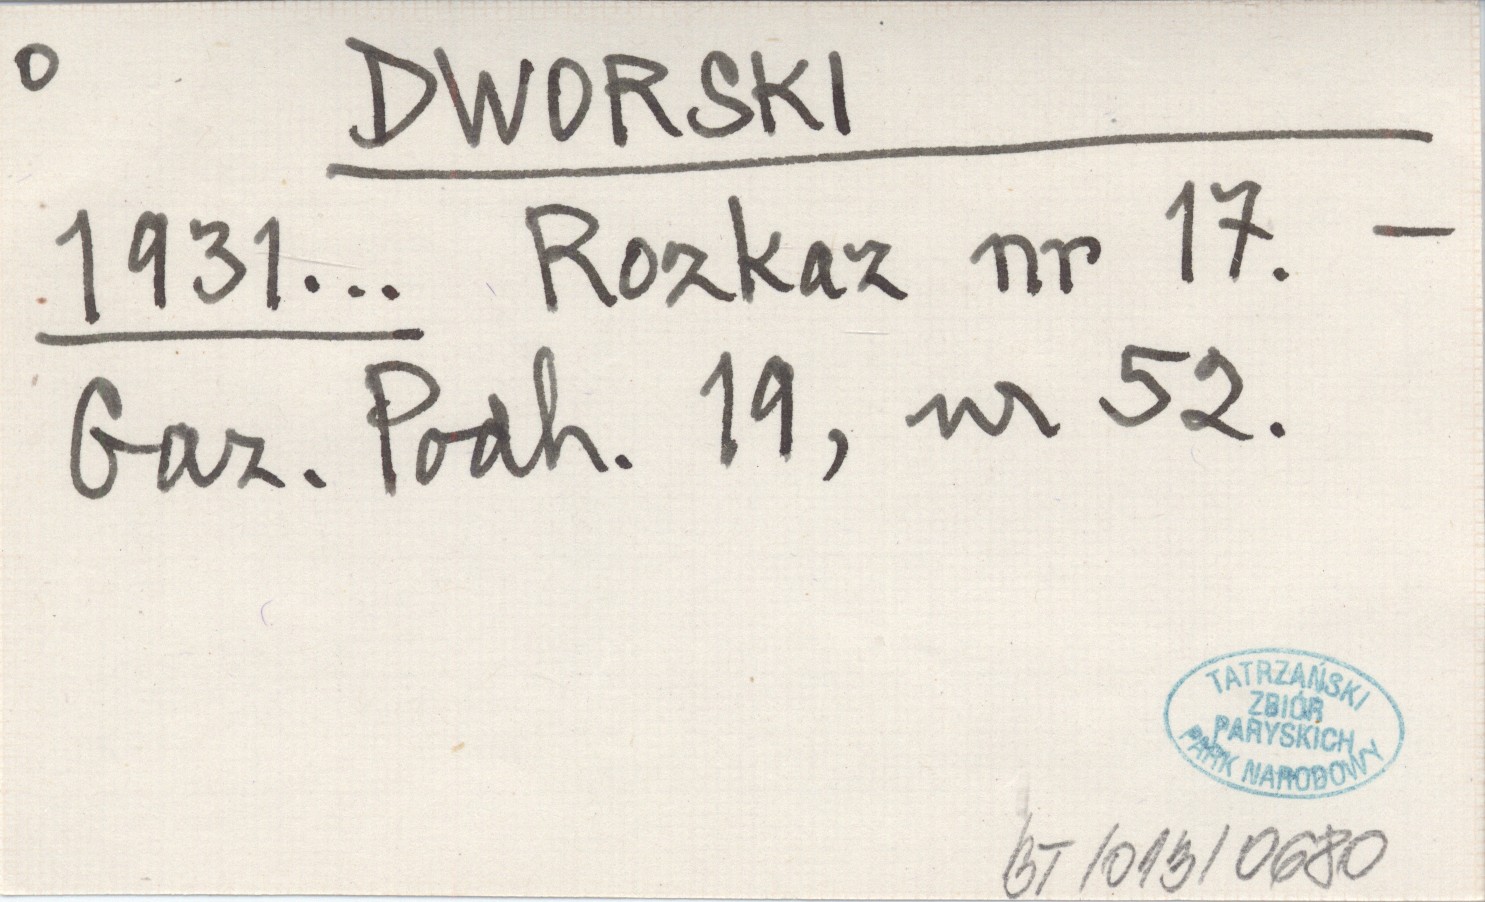 o DWORSKI
1931... Rozkaz nr 17. —
Gaz. Podh. 19, nr 52.
TATRZAŃSKI
ZBIÓR
PARYSKICH
PARK NARODOWY
BT/013/0680